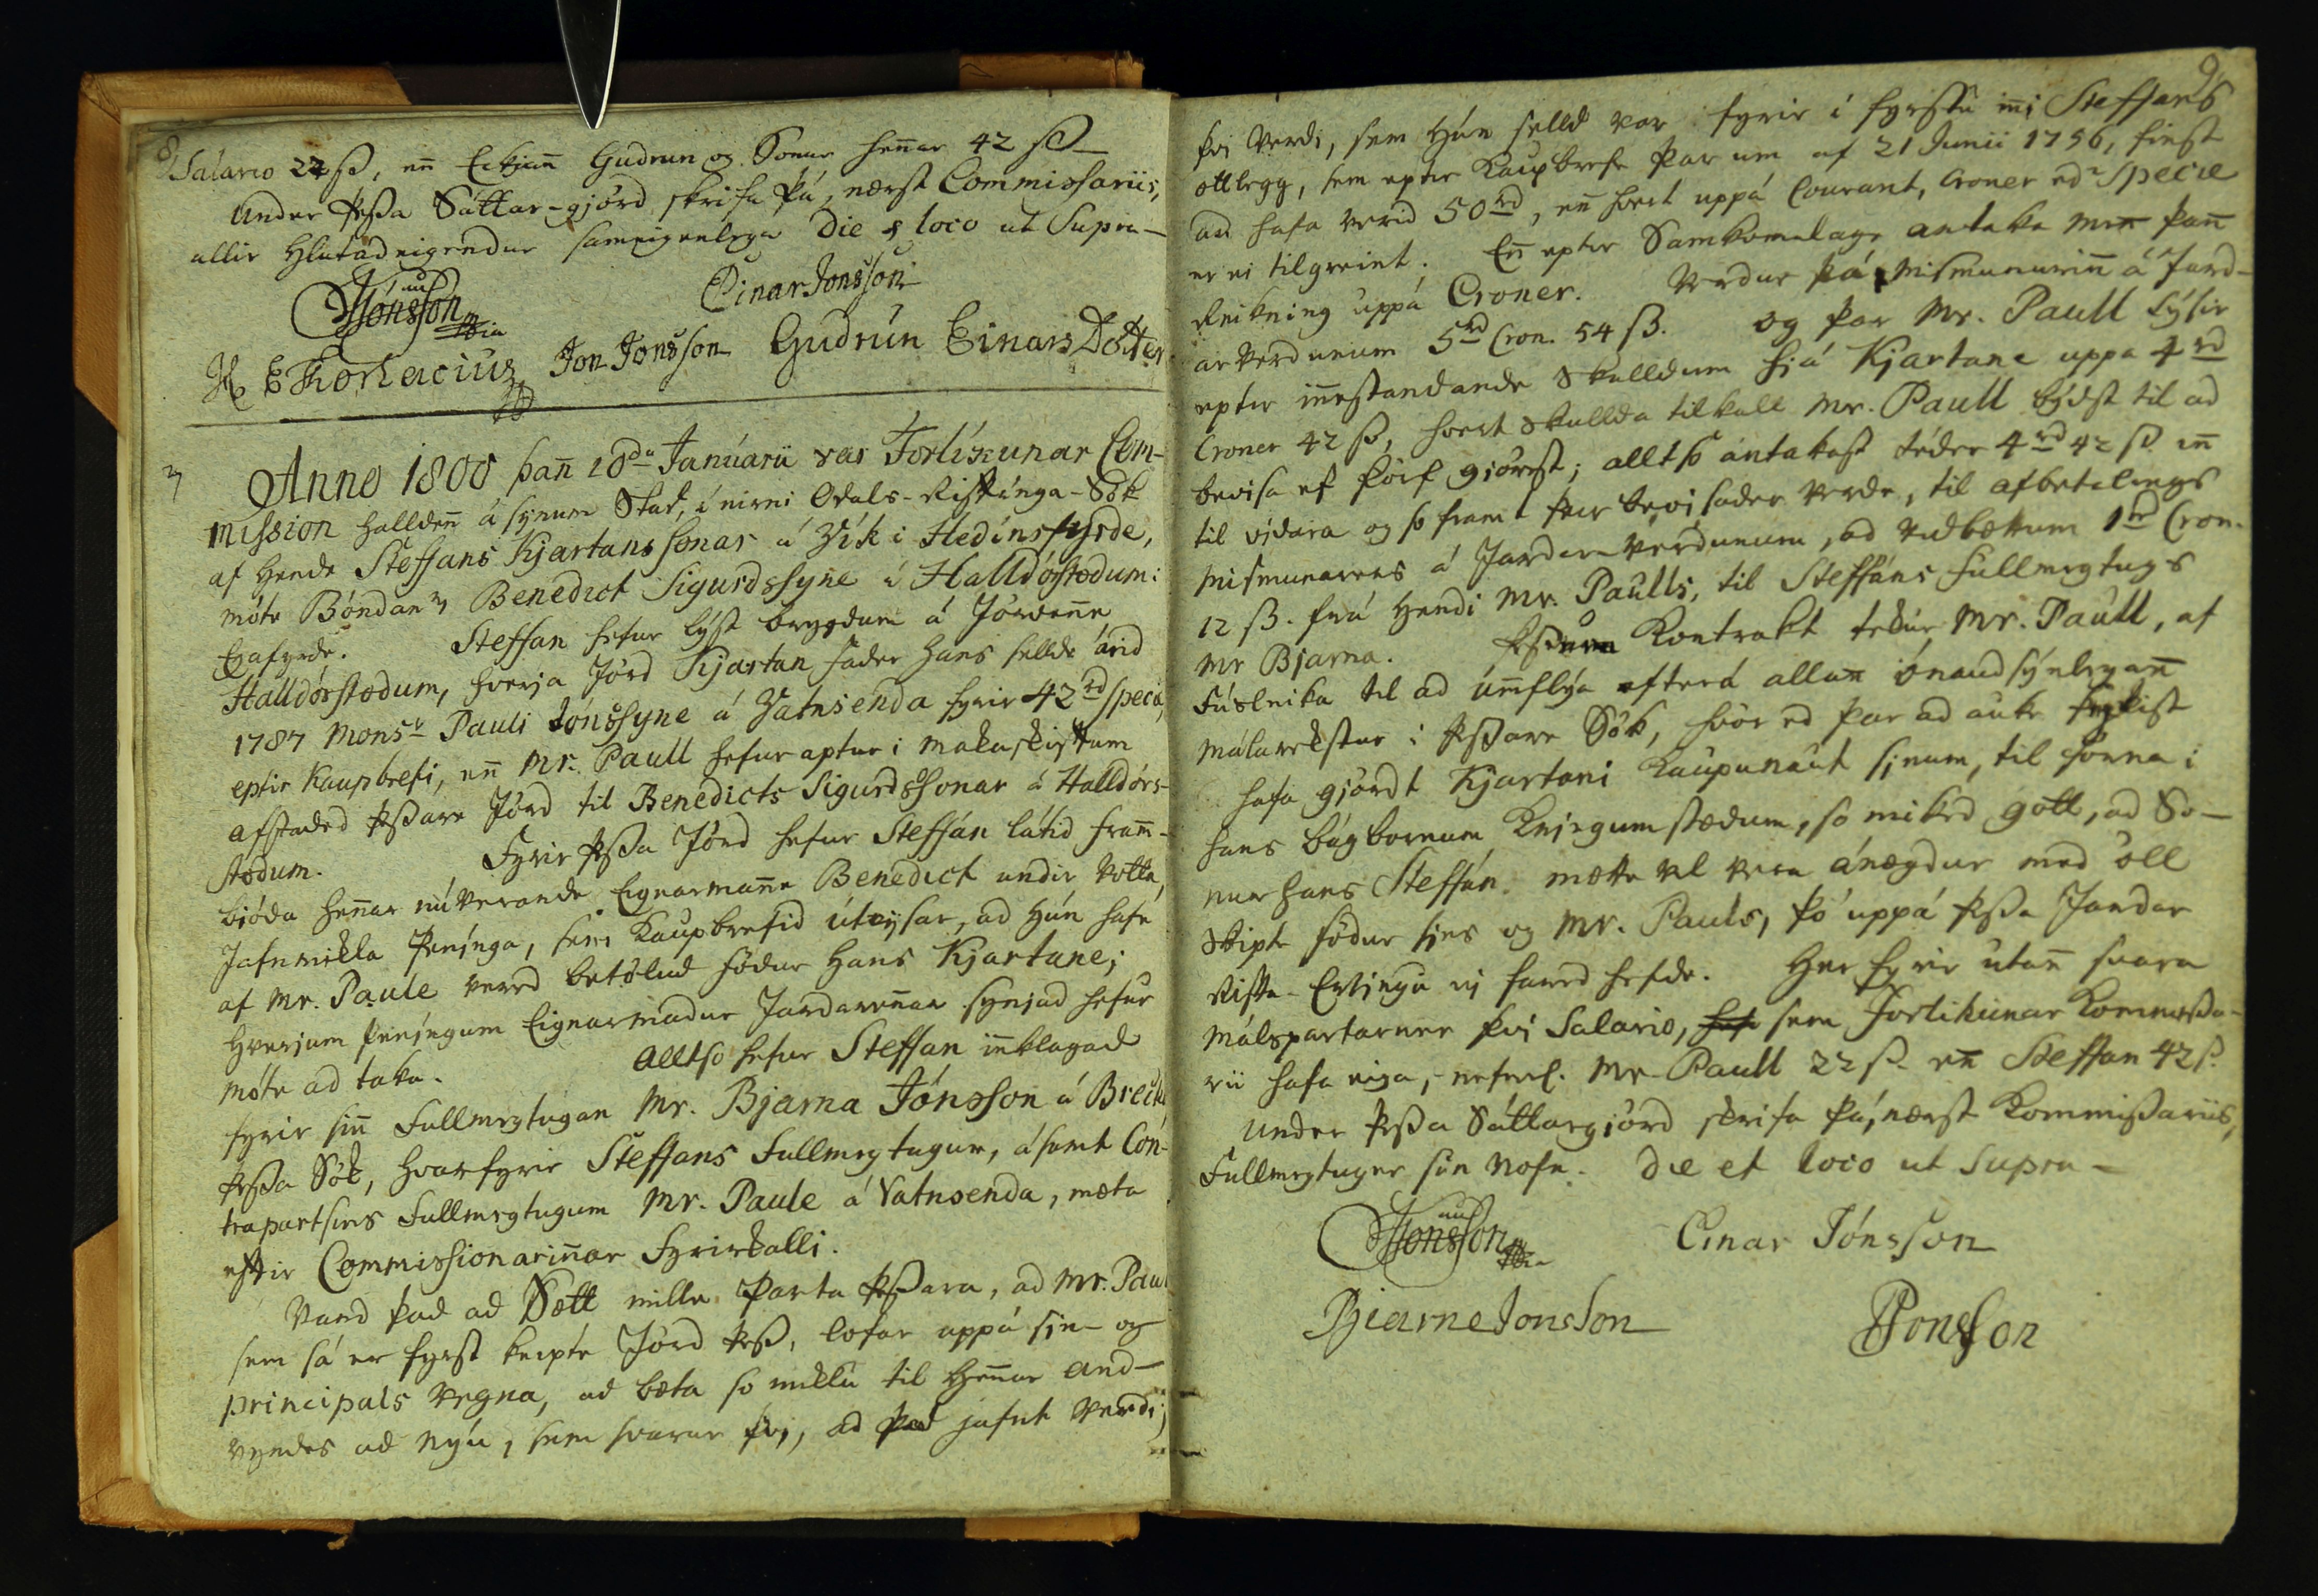 8
Salario 22 ß, en̄ Eckian̄ Gudrun og Sonur hen̄ar 42 ß
Under þessa Sáttar-gjörd skrifa þá, nærst Commissariis,
allir hlutadeigendur sameigenlega die & loco ut Supra
Jónsson
Einar Jónsson
H EThorlacius Jon Jonsson Gudrún Einars Dotter
Anno 1800 þan̄ 18da Januarii var Forlíkunar Com-
mission halldin̄ á synum Stad, í eirni Odals-Riftínga-Sök
af hende Steffans Kjartanssonar á Vík i Hédinsfyrde,
móte Bóndan̄ Benedict Sigurdssyne á Halldórstödum i
Eyafyrde. Steffan hefur lýst brygdum á Jördin̄e
Halldórstödum, hverja Jörd Kjartan fader hans sellde árid
1787 Monsr Pauli Jónssyne á Vatnsenda fyrir 42 rd specie,
eptir Kaupbrefi, en̄ Mr. Paull hefur aptur i makaskiftum
afstaded þessare Jörd til Benedicts Sigurdssonar á Halldórs-
stödum. Fyrir þessa Jörd hefur Steffán látid fram̄-
bjóda hen̄ar núverande Eignarman̄e Benedict undir Votta,
Jafnmikla Penínga, sem Kaupbrefid útvýsar, ad hún hafe
af Mr. Paule vered betölud födur hans Kjartane;
hverjum Peníngum Eignarmadur Jardaren̄ar synjad hefur
móte ad taka. Alltso hefur Steffan in̄klagad
fyrir sin̄ Fullmegtugan Mr. Bjarna Jónsson á Brecku
þessa Sök, hvarfyrir Steffans Fullmegtugur, ásamt Con-
trapartsins Fullmegtugum Mr. Paule á Vatnsenda, mæta
eftir Commissionarin̄ar Fyrirkalli.
Vard þad ad Sætt mille Parta þessara, ad Mr. Paul
sem sá er fyrst keipte Jörd þess, lofar uppá sin- og
principals vegna, ad bæta so miklu til hen̄ar and-
vyrdes ad nýu, sem svarar þvi, ad þad jafnt verdi
9
þvi Verdi, sem hún selld var fyrir i fyrstu in̄i Steffans
ættlegg, sem epter Kaupbrefe þar um af 21 Junii 1756, finst
ad hafa verid 50 rd, en̄ hvert uppá Courant, Croner edr Specie
er ei tilgreint. En̄ epter Samkomulage antaka men̄ þan̄
Reikning uppá Croner. Verdur þá Mismunurin̄ á Jard-
arverdunum 5 rd Cron. 54 ß. og þar Mr. Paull Lýsir
epter in̄estandande Skulldum hjá Kjartane uppá 4 rd
Croner 42 ß, hvert Skullda tilkall Mr. Paull býdst til ad
bevisa ef þörf gjörest; alltso antakast téder 4 rd 42 ß en̄
til vidara og so framt þeir bevisader verde, til afbetalings
Mismunarens á Jardar-Verdunum, ad vidbættum 1 rd Cron.
12 ß. frá hendi Mr. Paulls, til Steffáns fullmegtugs
Mr Bjarna. Þessum Kontrakt tekur Mr. Paull, af
Fúsleika til ad um̄flýa efterá allan̄ ónaudsýnlegan̄
Málarekstur i þessare Sök, hvör ed þar ad auke þykist
hafa gjördt Kjartani Kaupunaut sinum, til forna i
hans bágbornum Kringumstædum, so mikid gott, ad So-
nur hans Steffán mætte vel vera ánægdur med öll
Skipte födur sins og Mr. Pauls, þó uppá þessa Jardar
Rifta-Erlingu ej fared hefde. Her fyrir utan̄ svara
Málspartarner þvi Salario, sem Forlikunar Kommissa-
rii hafa eiga, nefnil. Mr. Paull 22 ß. en̄ Steffan 42 ß.
Under þessa Sáttargjörd skrifa þá, nærst Kommissariis,
Fullmegtuger sin Nofn. Die et loco ut Supra
Jónsson
Einar Jónsson
Bjarne Jonsson
PJonsson